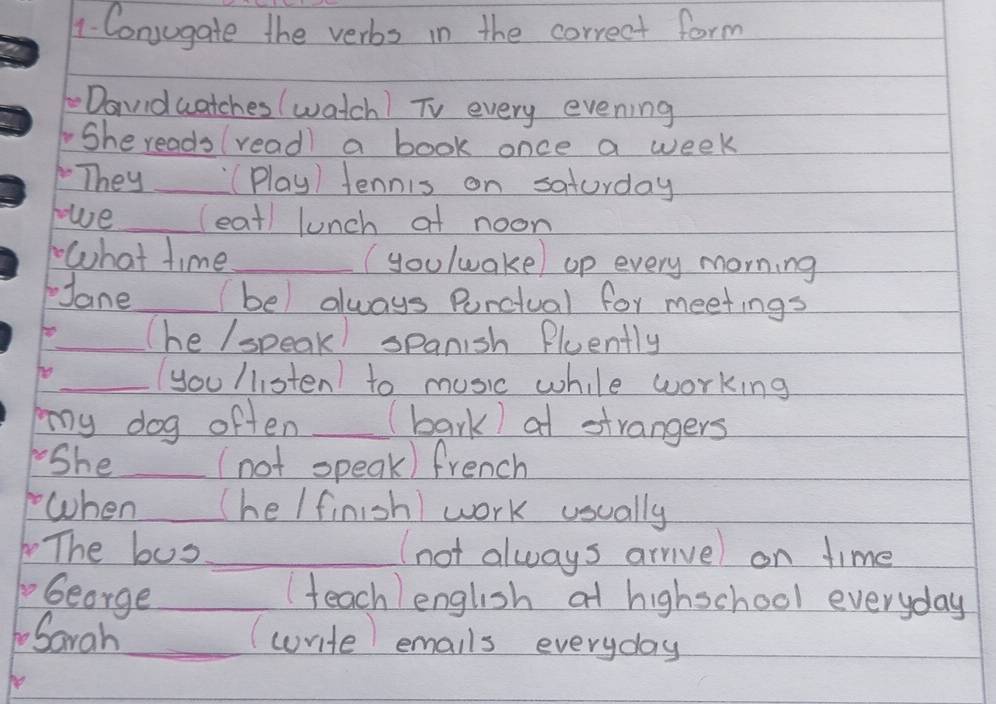 1- Conjugate the verbs in the correct form
David watches (watch) TV every evening
She reads (read) a book once a week
They ____ (Play) tennis on saturday
we ____ (eat) lunch at noon
What time ____ (you/wake) up every morning
Jane ____ (be) always Punctual for meetings
____ (he/speak) spanish fluently
____ (you/listen) to music while working
my dog often ____ (bark) at strangers
She ____ (not speak) french
When ____ (he/finish) work usually
The bus ____ (not always arrive) on time
George ____ (teach) english at highschool everyday
Sarah ____ (write) emails everyday